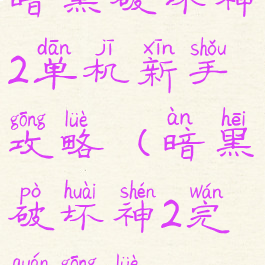 暗黑破坏神
dān jī xīn shǒu
2单机新手
gōng lüè àn hēi
攻略（暗黑
pò huài shén wán
破坏神2完
quán gōng lüè